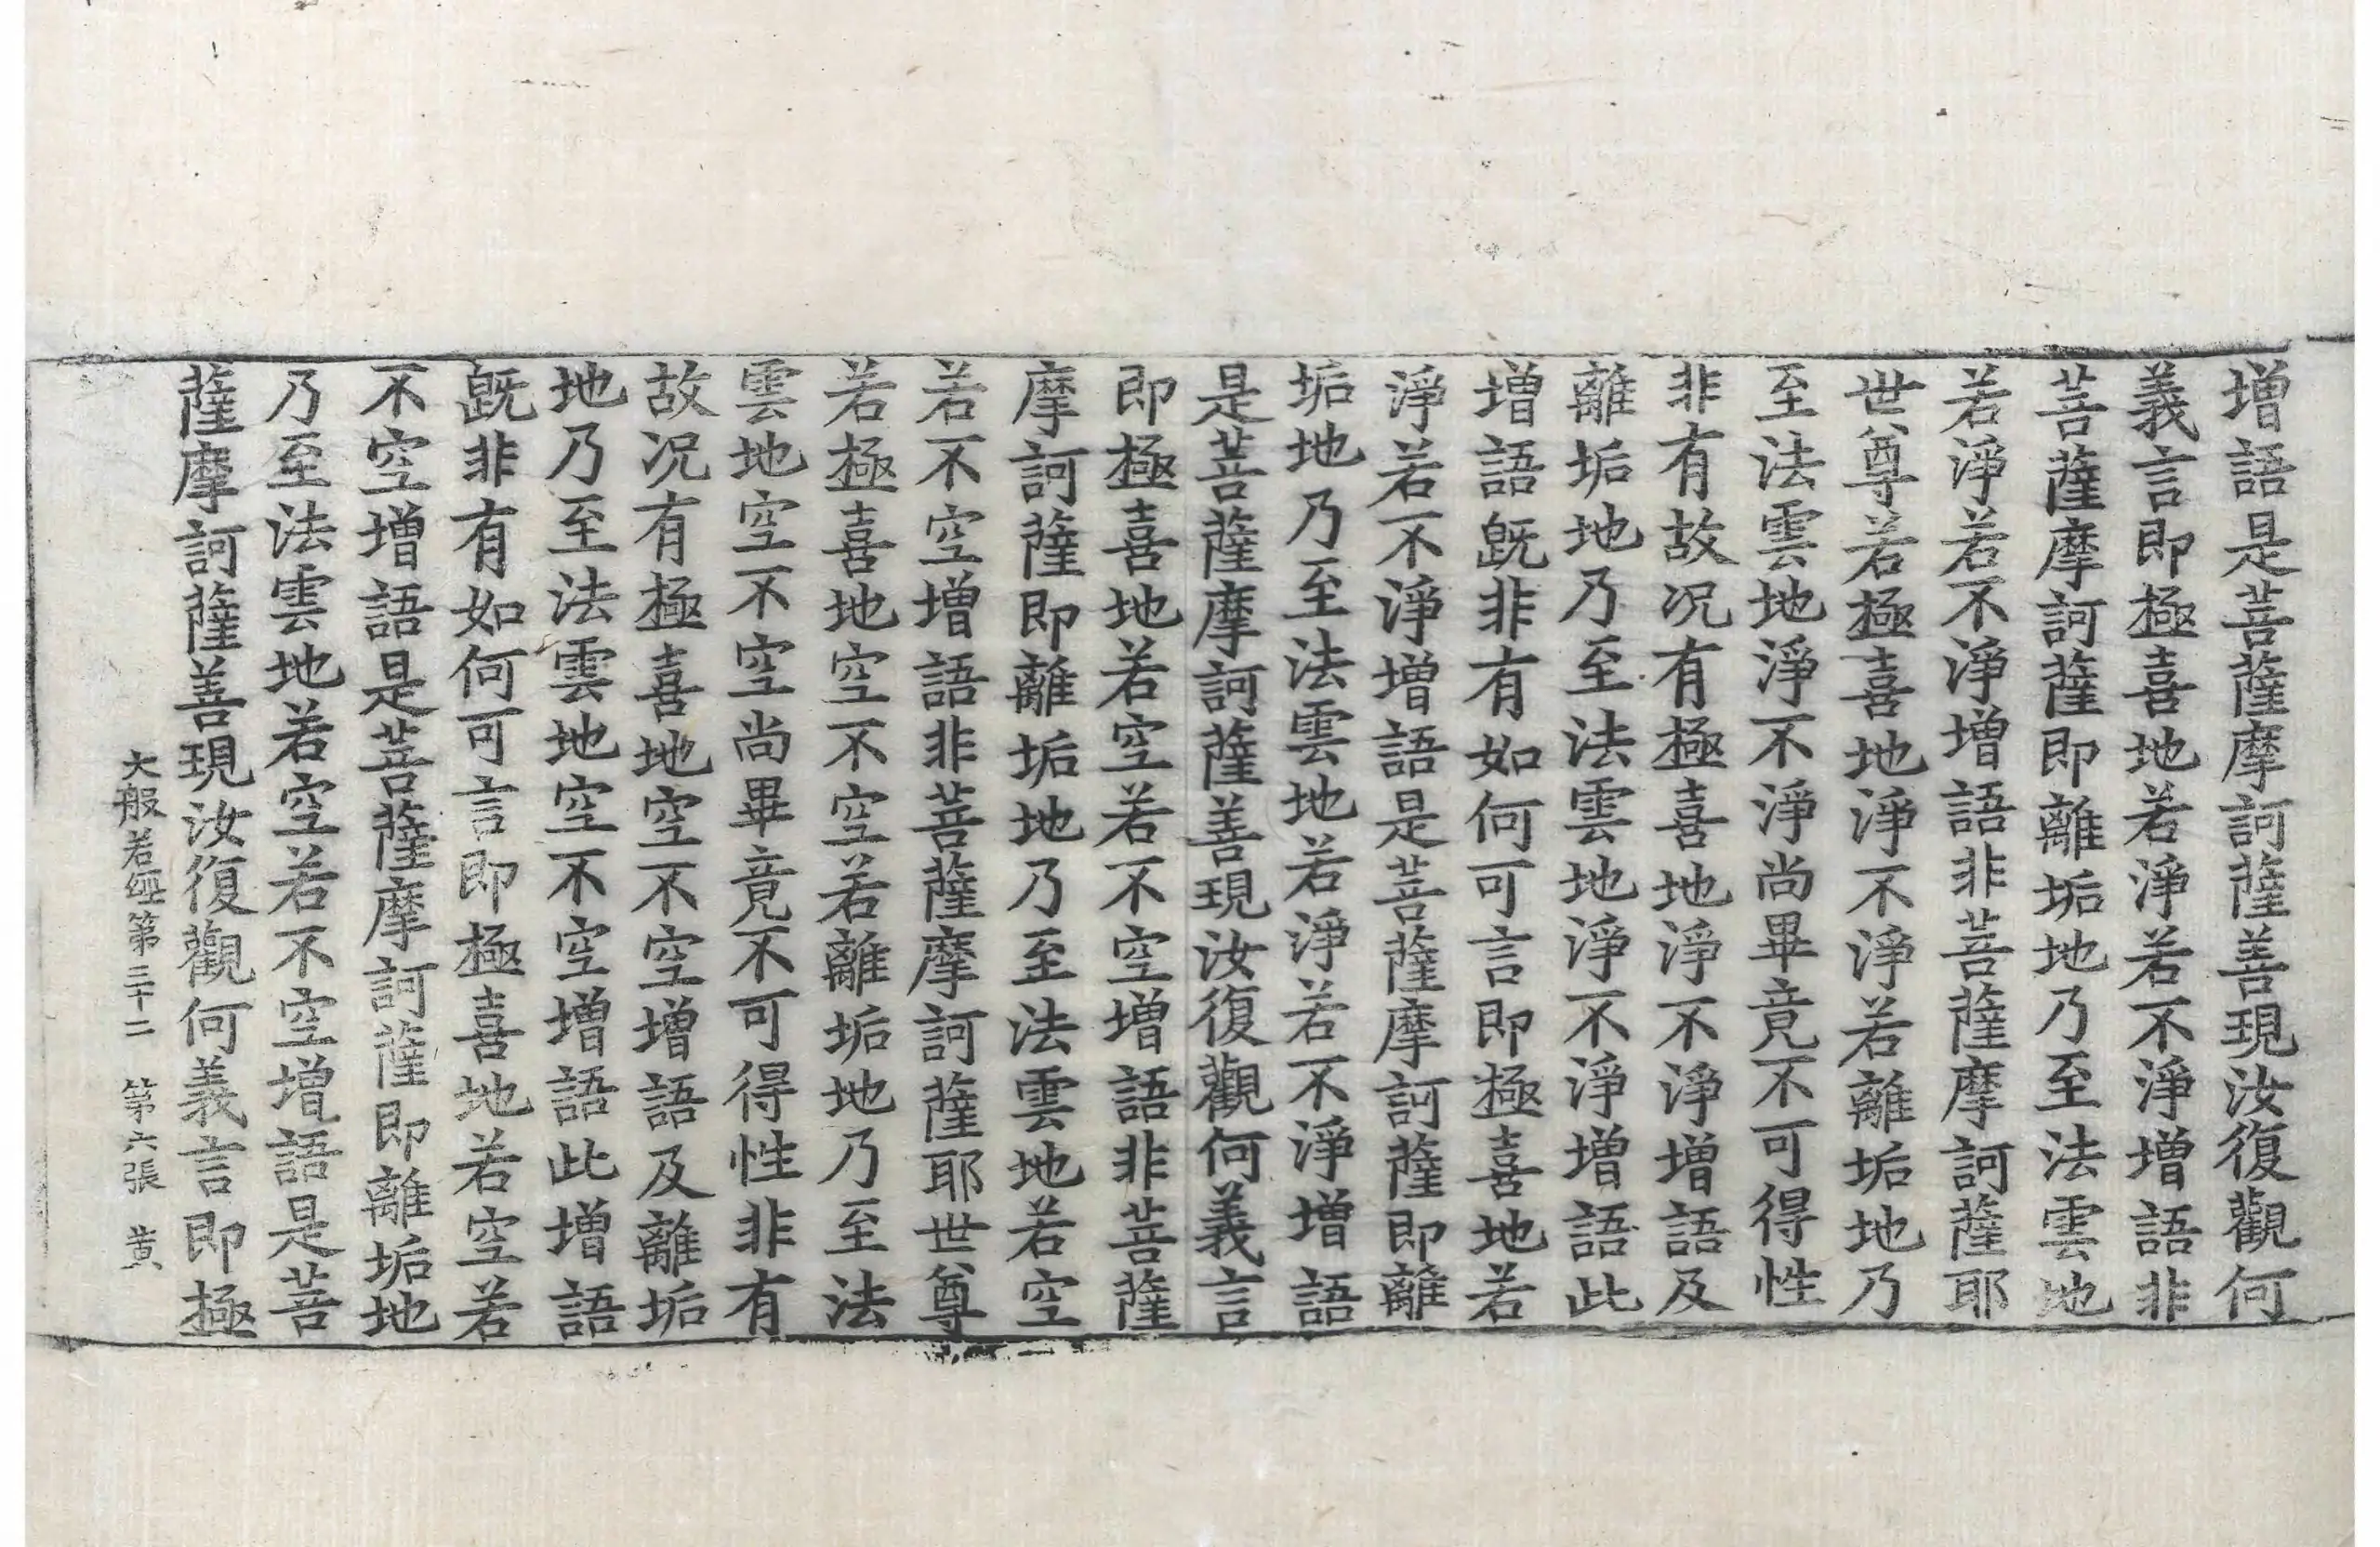 増語是菩薩摩訶薩善現汝復觀何
義言即極喜地若淨若不淨增語非
菩薩摩訶薩即離垢地乃至法雲地
若淨若不淨增語非菩薩摩訶薩耶
世尊若極喜地淨不淨若離垢地乃
至法雲地淨不淨尚畢竟不可得性
非有故况有極喜地淨不淨增語及
離垢地乃至法雲地淨不淨增語此
增語旣非有如何可言即極喜地若
淨若不淨增語是菩薩摩訶薩即離
垢地乃至法雲地若淨若不淨增語
是菩薩摩訶薩善現汝復觀何義言
即極喜地若空若不空增語非菩薩
摩訶薩即離垢地乃至法雲地若空
若不空增語非菩薩摩訶薩耶世尊
若極喜地空不空若離垢地乃至法
雲地空不空尚畢竟不可得性非有
故况有極喜地空不空增語及離垢
地乃至法雲地空不空增語此增語
旣非有如何可言即極喜地若空若
不空增語是菩薩摩訶薩即離垢地
乃至法雲地若空若不空增語是菩
薩摩訶薩善現汝復觀何義言即極
大般若經第三十二 第六張 黄